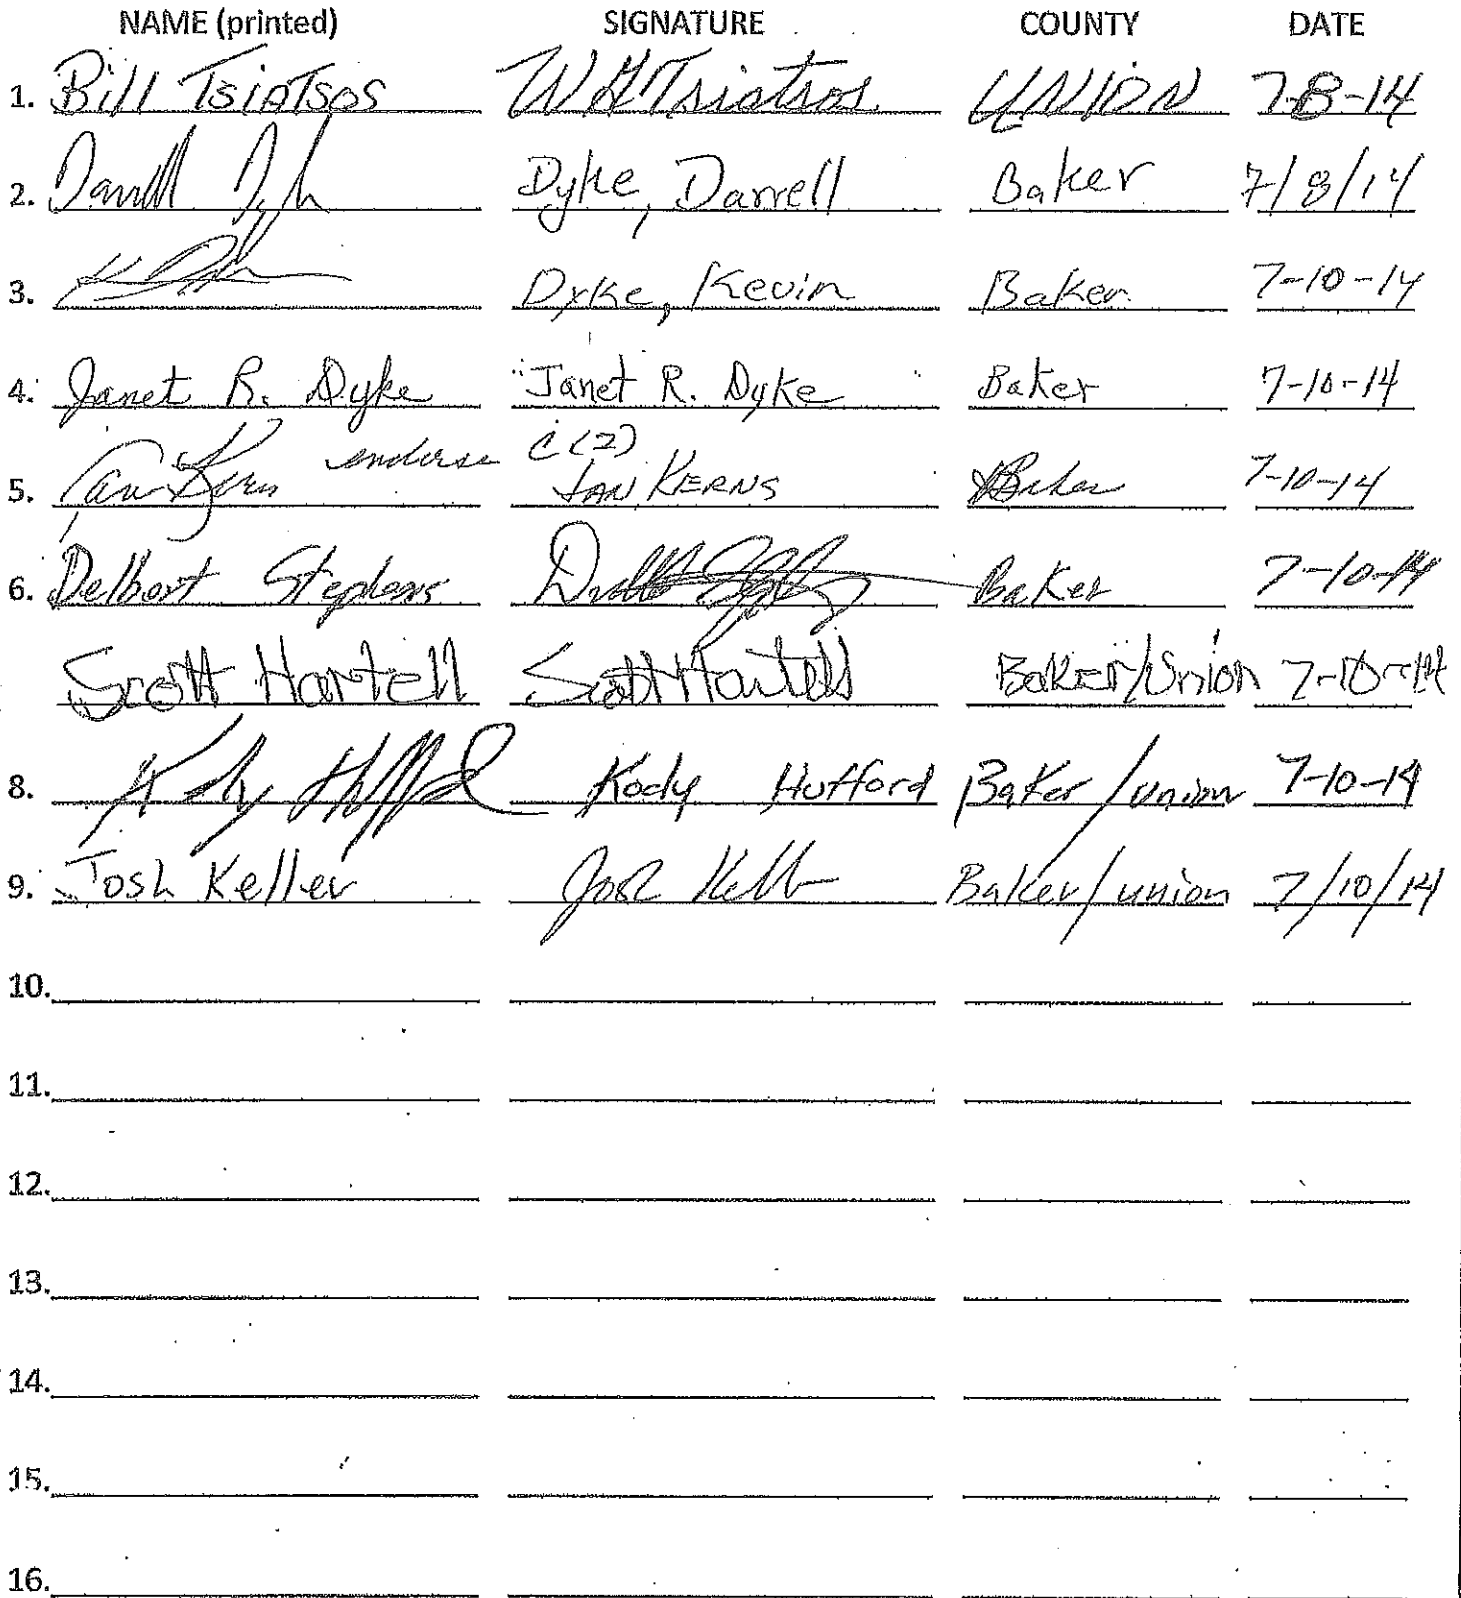 NAME (printed) SIGNATURE COUNTY DATE
1. Bill Tsiatsos WH Tsiatsos UNION 7-8-14
2. Darrell Dyke Dyke, Darrell Baker 7/8/14
3. Dyke, Kevin Baker 7-10-14
4. Janet R. Dyke Janet R. Dyke Baker 7-10-14
endorse C(2)
5. Jan Kerns JAN KERNS Baker 7-10-14
6. Delbert Stephens Baker 7-10-14
Scott Hartell Scott Hartell Baker/Union 7-10-14
8. Kody Hufford Kody Hufford Baker/union 7-10-14
9. Josh Keller Josh Keller Baker/union 7/10/14
10.
11.
12.
13.
14.
15.
16.